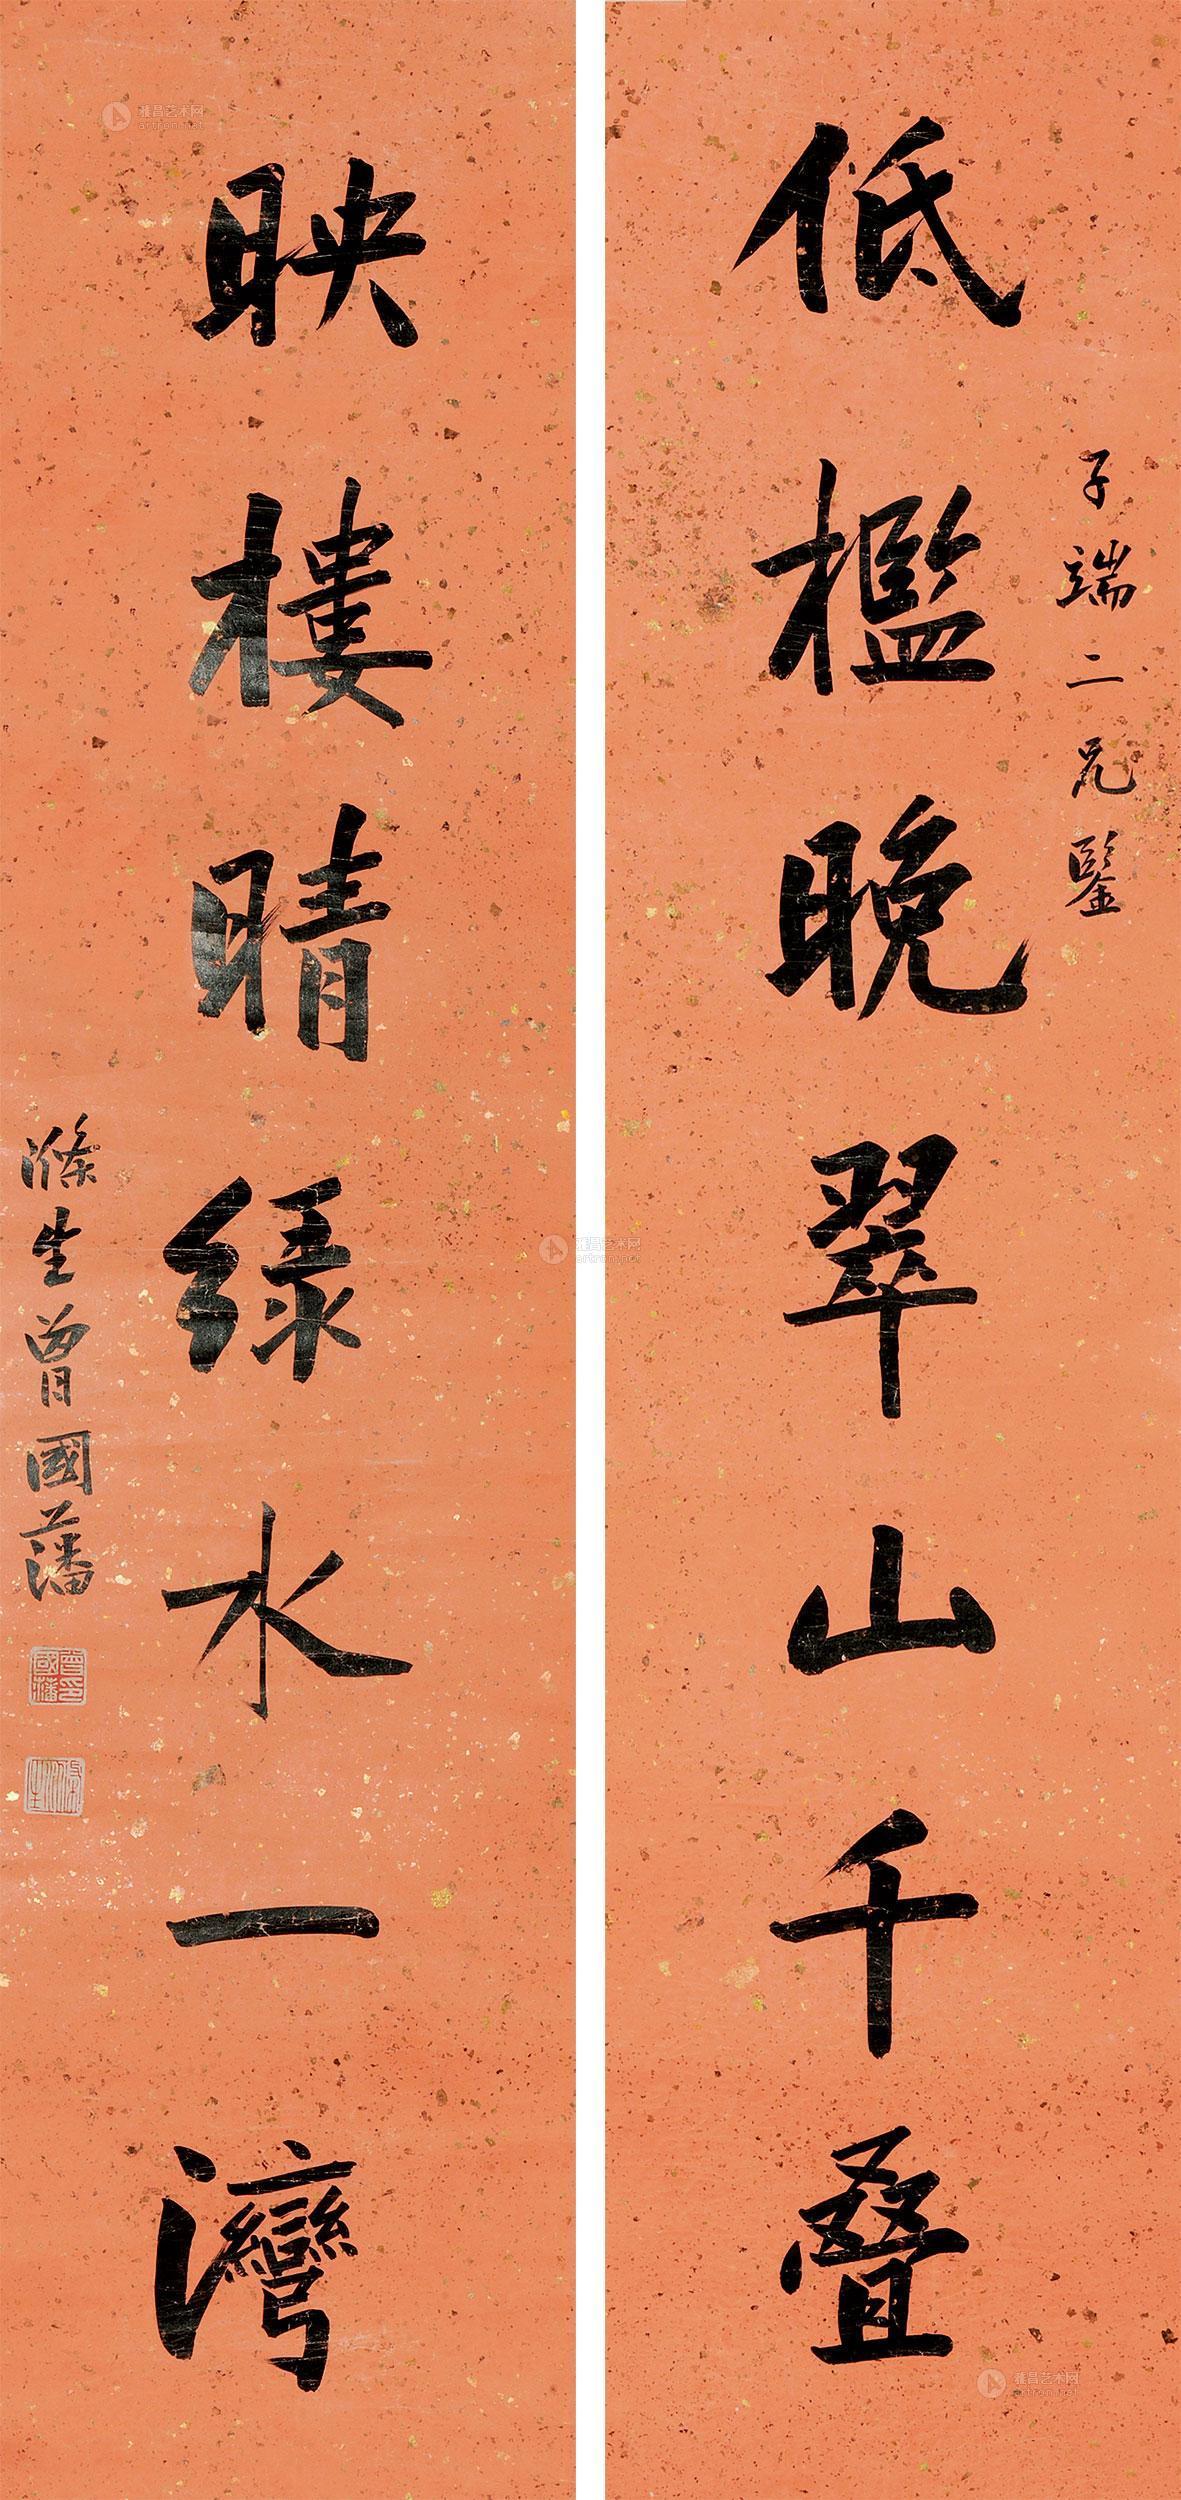 子端二兄鑒
低檻晚翠山千疊
映樓晴绿水一灣
滌生曾國藩
曾國藩印
滌生
雅昌艺术网
artron.net
雅昌艺术网
artron.net
雅昌艺术网
artron.net